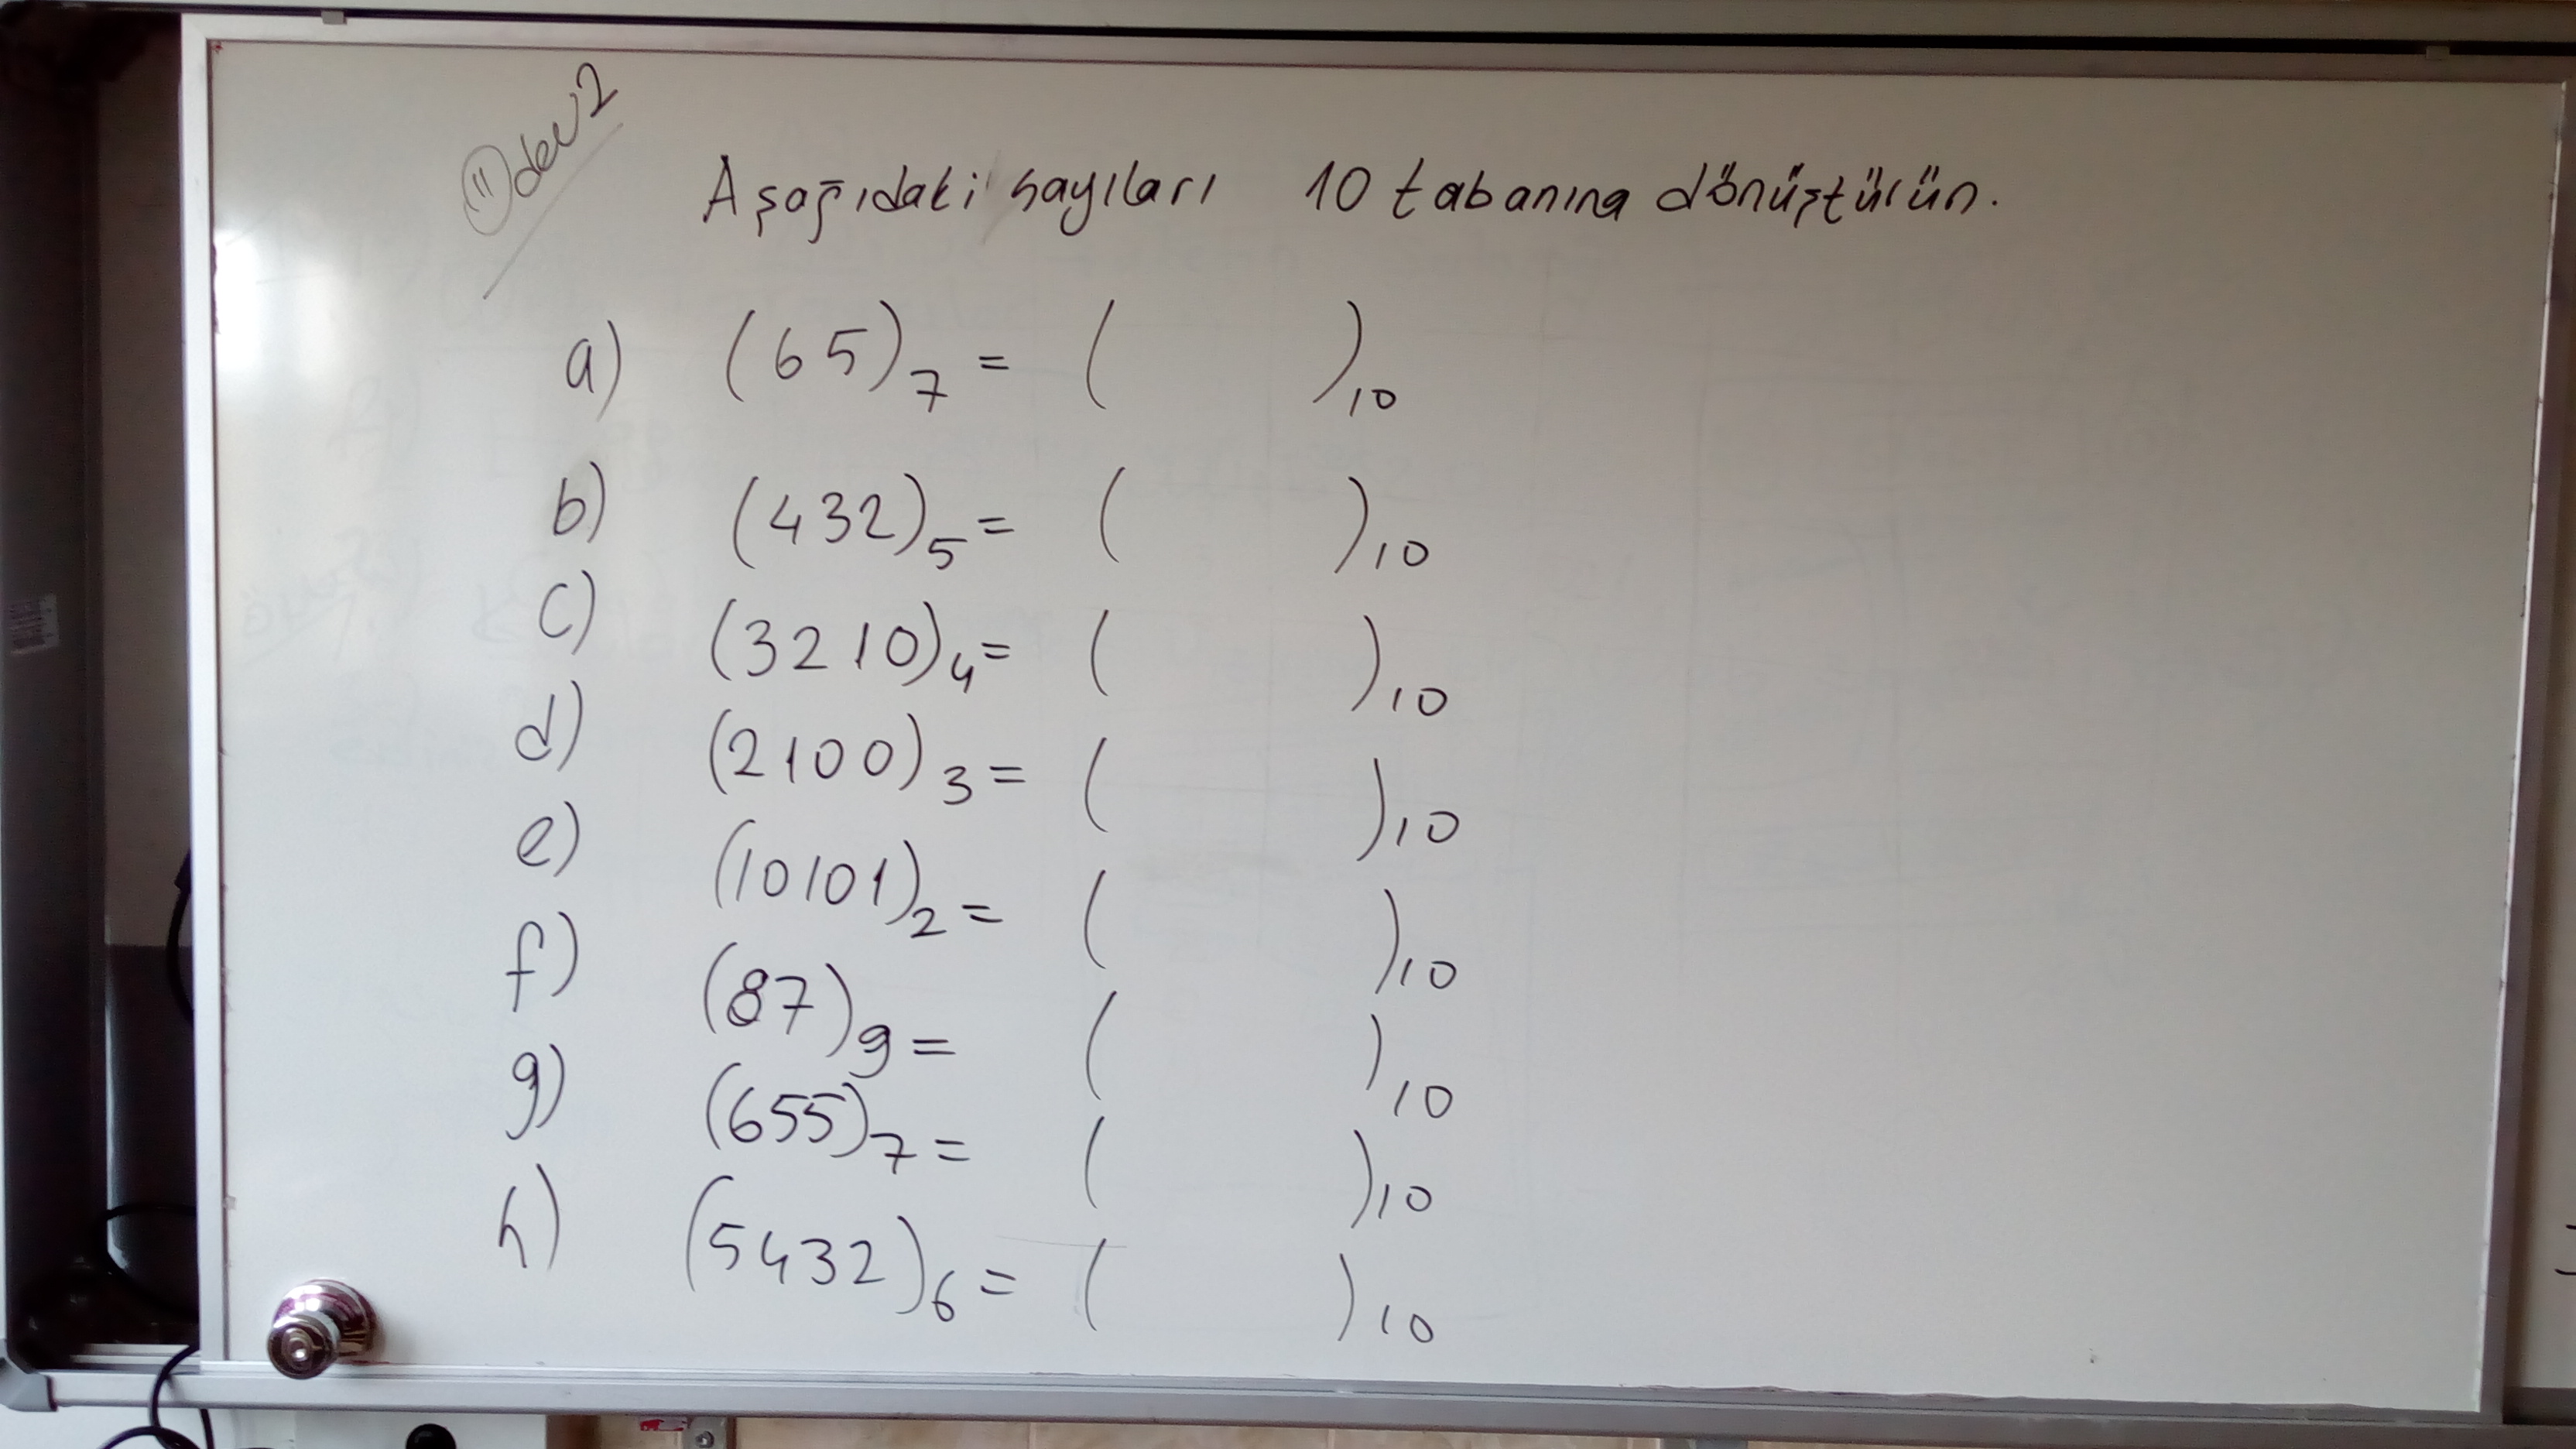 Ödev 2
Aşağıdaki sayıları 10 tabanına dönüştürün.
a) (65)₇ = ( )₁₀
b) (432)₅ = ( )₁₀
c) (3210)₄ = ( )₁₀
d) (2100)₃ = ( )₁₀
e) (10101)₂ = ( )₁₀
f) (87)₉ = ( )₁₀
g) (655)₇ = ( )₁₀
h) (5432)₆ = ( )₁₀